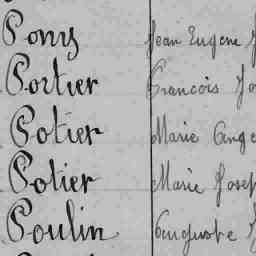 Pons Jean Eugene J
Portier Francois Jo
Potier Marie Ange
Potier Marie Josep
Poulin Auguste